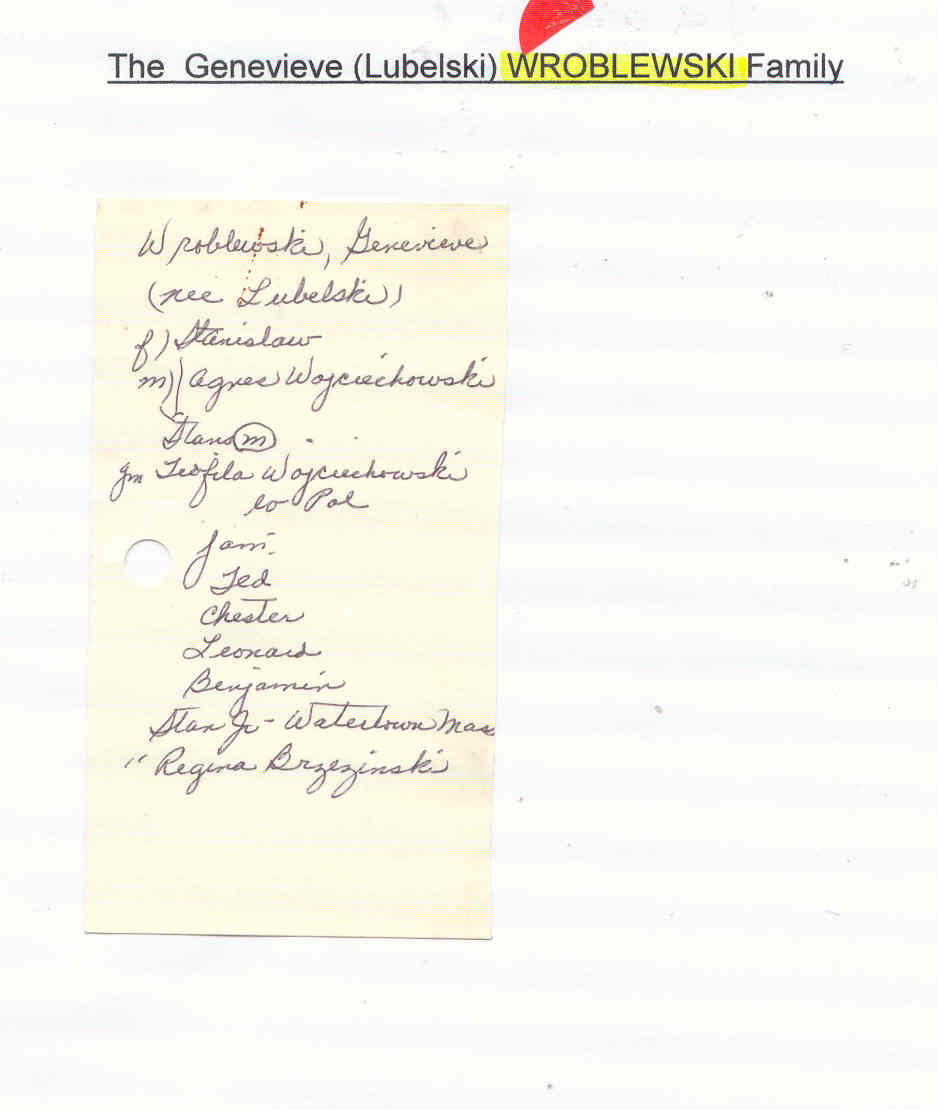 The Genevieve (Lubelski) WROBLEWSKI Family
Wroblewski, Genevieve
(nee Lubelski)
f) Stanislaw
m) Agnes Wojciechowski
Stans m
gm Teofila Wojciechowski
to Pol
fam.
Ted
Chester
Leonard
Benjamin
Stan Jr - Watertown Mass
" Regina Brzezinski